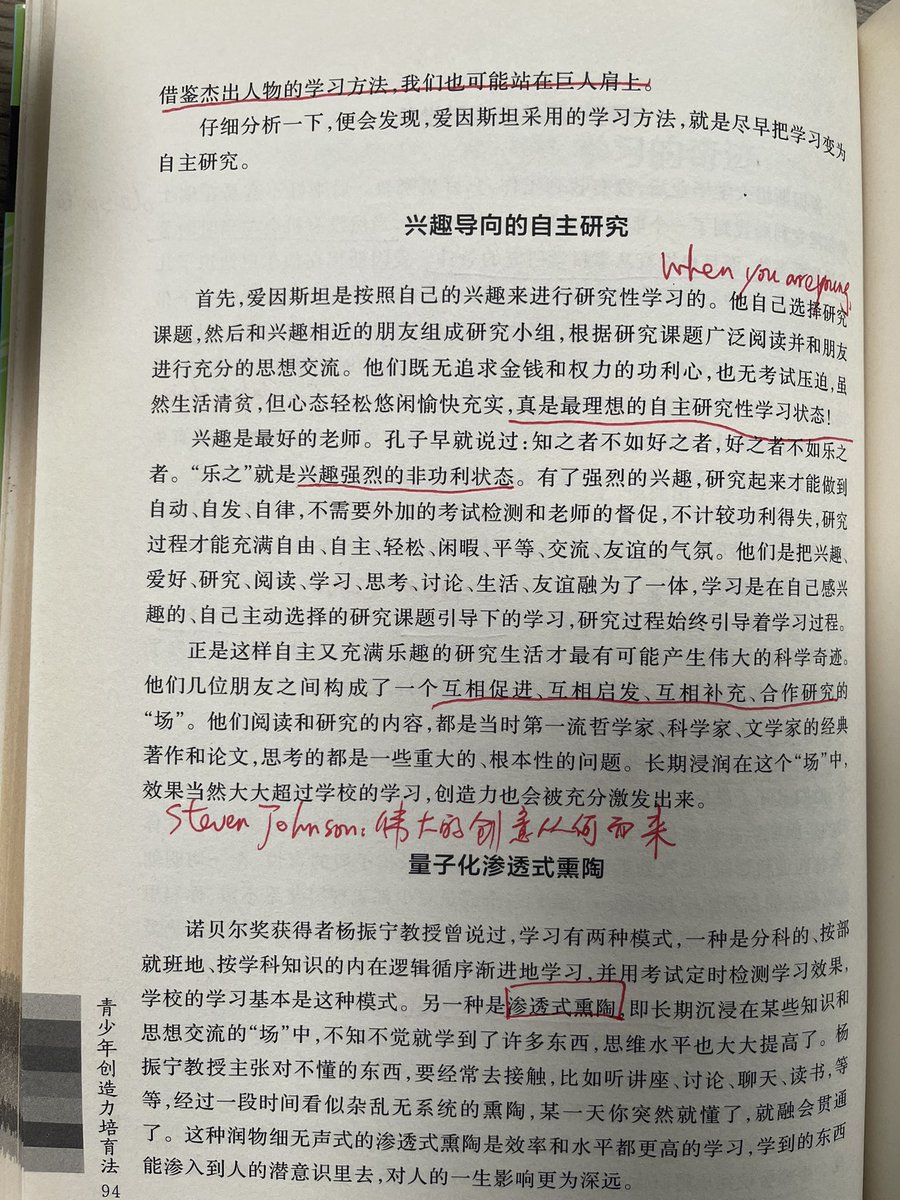 借鉴杰出人物的学习方法，我们也可能站在巨人肩上。
仔细分析一下，便会发现，爱因斯坦采用的学习方法，就是尽早把学习变为
自主研究。
兴趣导向的自主研究
When you are young,
首先，爱因斯坦是按照自己的兴趣来进行研究性学习的。他自己选择研究
课题，然后和兴趣相近的朋友组成研究小组，根据研究课题广泛阅读并和朋友
进行充分的思想交流。他们既无追求金钱和权力的功利心，也无考试压迫，虽
然生活清贫，但心态轻松悠闲愉快充实，真是最理想的自主研究性学习状态！
兴趣是最好的老师。孔子早就说过：知之者不如好之者，好之者不如乐之
者。“乐之”就是兴趣强烈的非功利状态。有了强烈的兴趣，研究起来才能做到
自动、自发、自律，不需要外加的考试检测和老师的督促，不计较功利得失，研究
过程才能充满自由、自主、轻松、闲暇、平等、交流、友谊的气氛。他们是把兴趣、
爱好、研究、阅读、学习、思考、讨论、生活、友谊融为了一体，学习是在自己感兴
趣的、自己主动选择的研究课题引导下的学习，研究过程始终引导着学习过程。
正是这样自主又充满乐趣的研究生活才最有可能产生伟大的科学奇迹。
他们几位朋友之间构成了一个互相促进、互相启发、互相补充、合作研究的
“场”。他们阅读和研究的内容，都是当时第一流哲学家、科学家、文学家的经典
著作和论文，思考的都是一些重大的、根本性的问题。长期浸润在这个“场”中，
效果当然大大超过学校的学习，创造力也会被充分激发出来。
Steven Johnson：伟大的创意从何而来
量子化渗透式熏陶
诺贝尔奖获得者杨振宁教授曾说过，学习有两种模式，一种是分科的、按部
就班地、按学科知识的内在逻辑循序渐进地学习，并用考试定时检测学习效果，
学校的学习基本是这种模式。另一种是渗透式熏陶，即长期沉浸在某些知识和
思想交流的“场”中，不知不觉就学到了许多东西，思维水平也大大提高了。杨
振宁教授主张对不懂的东西，要经常去接触，比如听讲座、讨论、聊天、读书，等
等，经过一段时间看似杂乱无系统的熏陶，某一天你突然就懂了，就融会贯通
了。这种润物细无声式的渗透式熏陶是效率和水平都更高的学习，学到的东西
能渗入到人的潜意识里去，对人的一生影响更为深远。
青少年创造力培育法
94